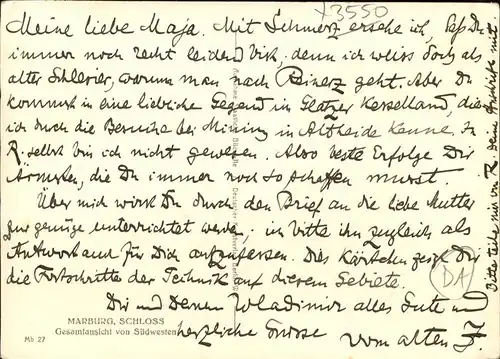 +3550
Meine liebe Maja. Mit Schmerz ersehe ich, daß Du
immer noch recht leidend bist, denn ich weiss doch als
alter Schlesier, warum man nach Reinerz geht. Aber Du
kommst in eine liebliche Gegend im Glatzer Kesselland, die
ich durch die Besuche bei Mining in Altheide kenne. In
R. selbst bin ich nicht gewesen. Also beste Erfolge Dir
Ärmsten, die Du immer noch so schaffen musst.
Über mich wirst Du durch den Brief an die liebe Mutter
zur genüge unterrichtet werden, ich bitte ihn zugleich als
Antwort auch für Dich aufzufassen. Das Kärtchen zeigt Dir
die Fortschritte der Technik auf diesem Gebiete.
Dir und Deinem Wladimir alles Gute und
herzliche Grüsse
vom alten J.
Bitte teile mir von R. Deine Anschrift mit
DA
MARBURG, SCHLOSS
Gesamtansicht von Südwesten
Mb 27